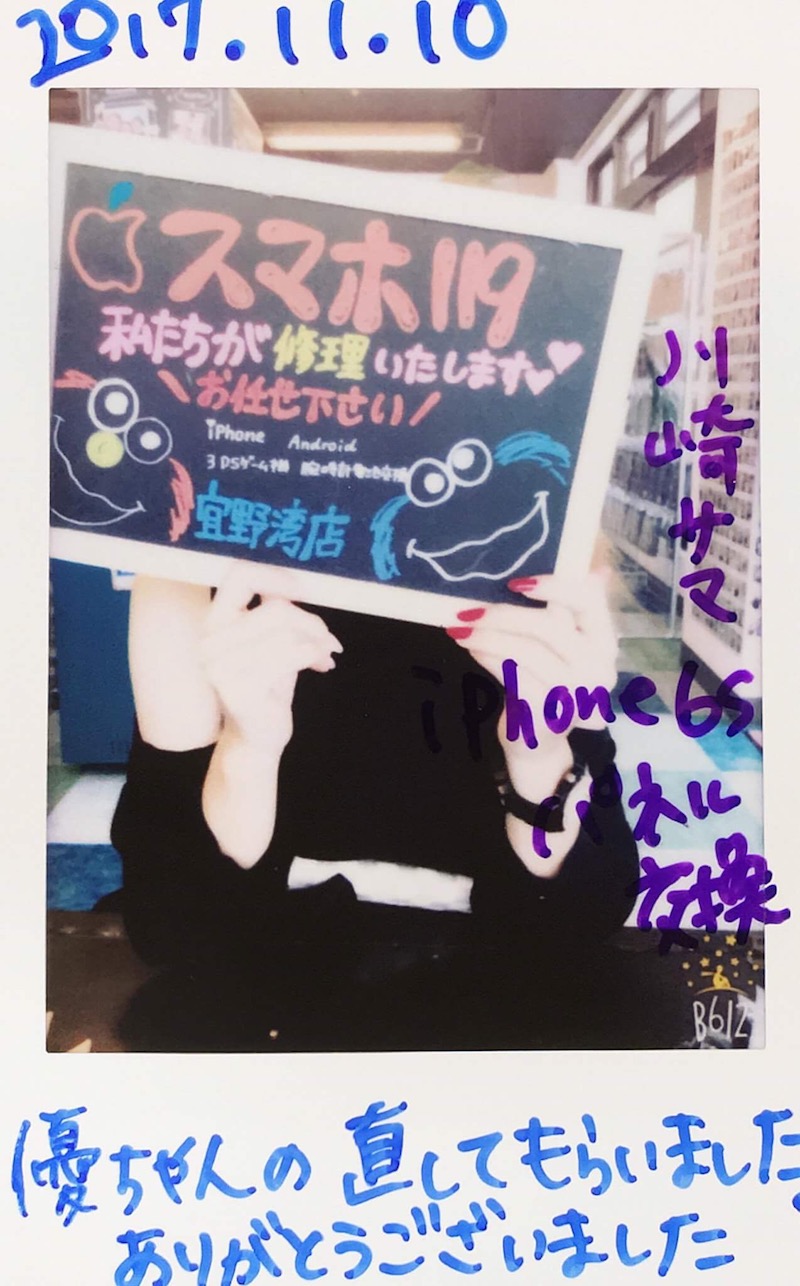 2017.11.10
スマホ119
私たちが修理いたします
\お任せ下さい/
iPhone Android
3DSゲーム機 腕時計電池交換
宜野湾店
川崎サマ
iPhone6s
パネル
交換
B612
優ちゃんの直してもらいました
ありがとうございました